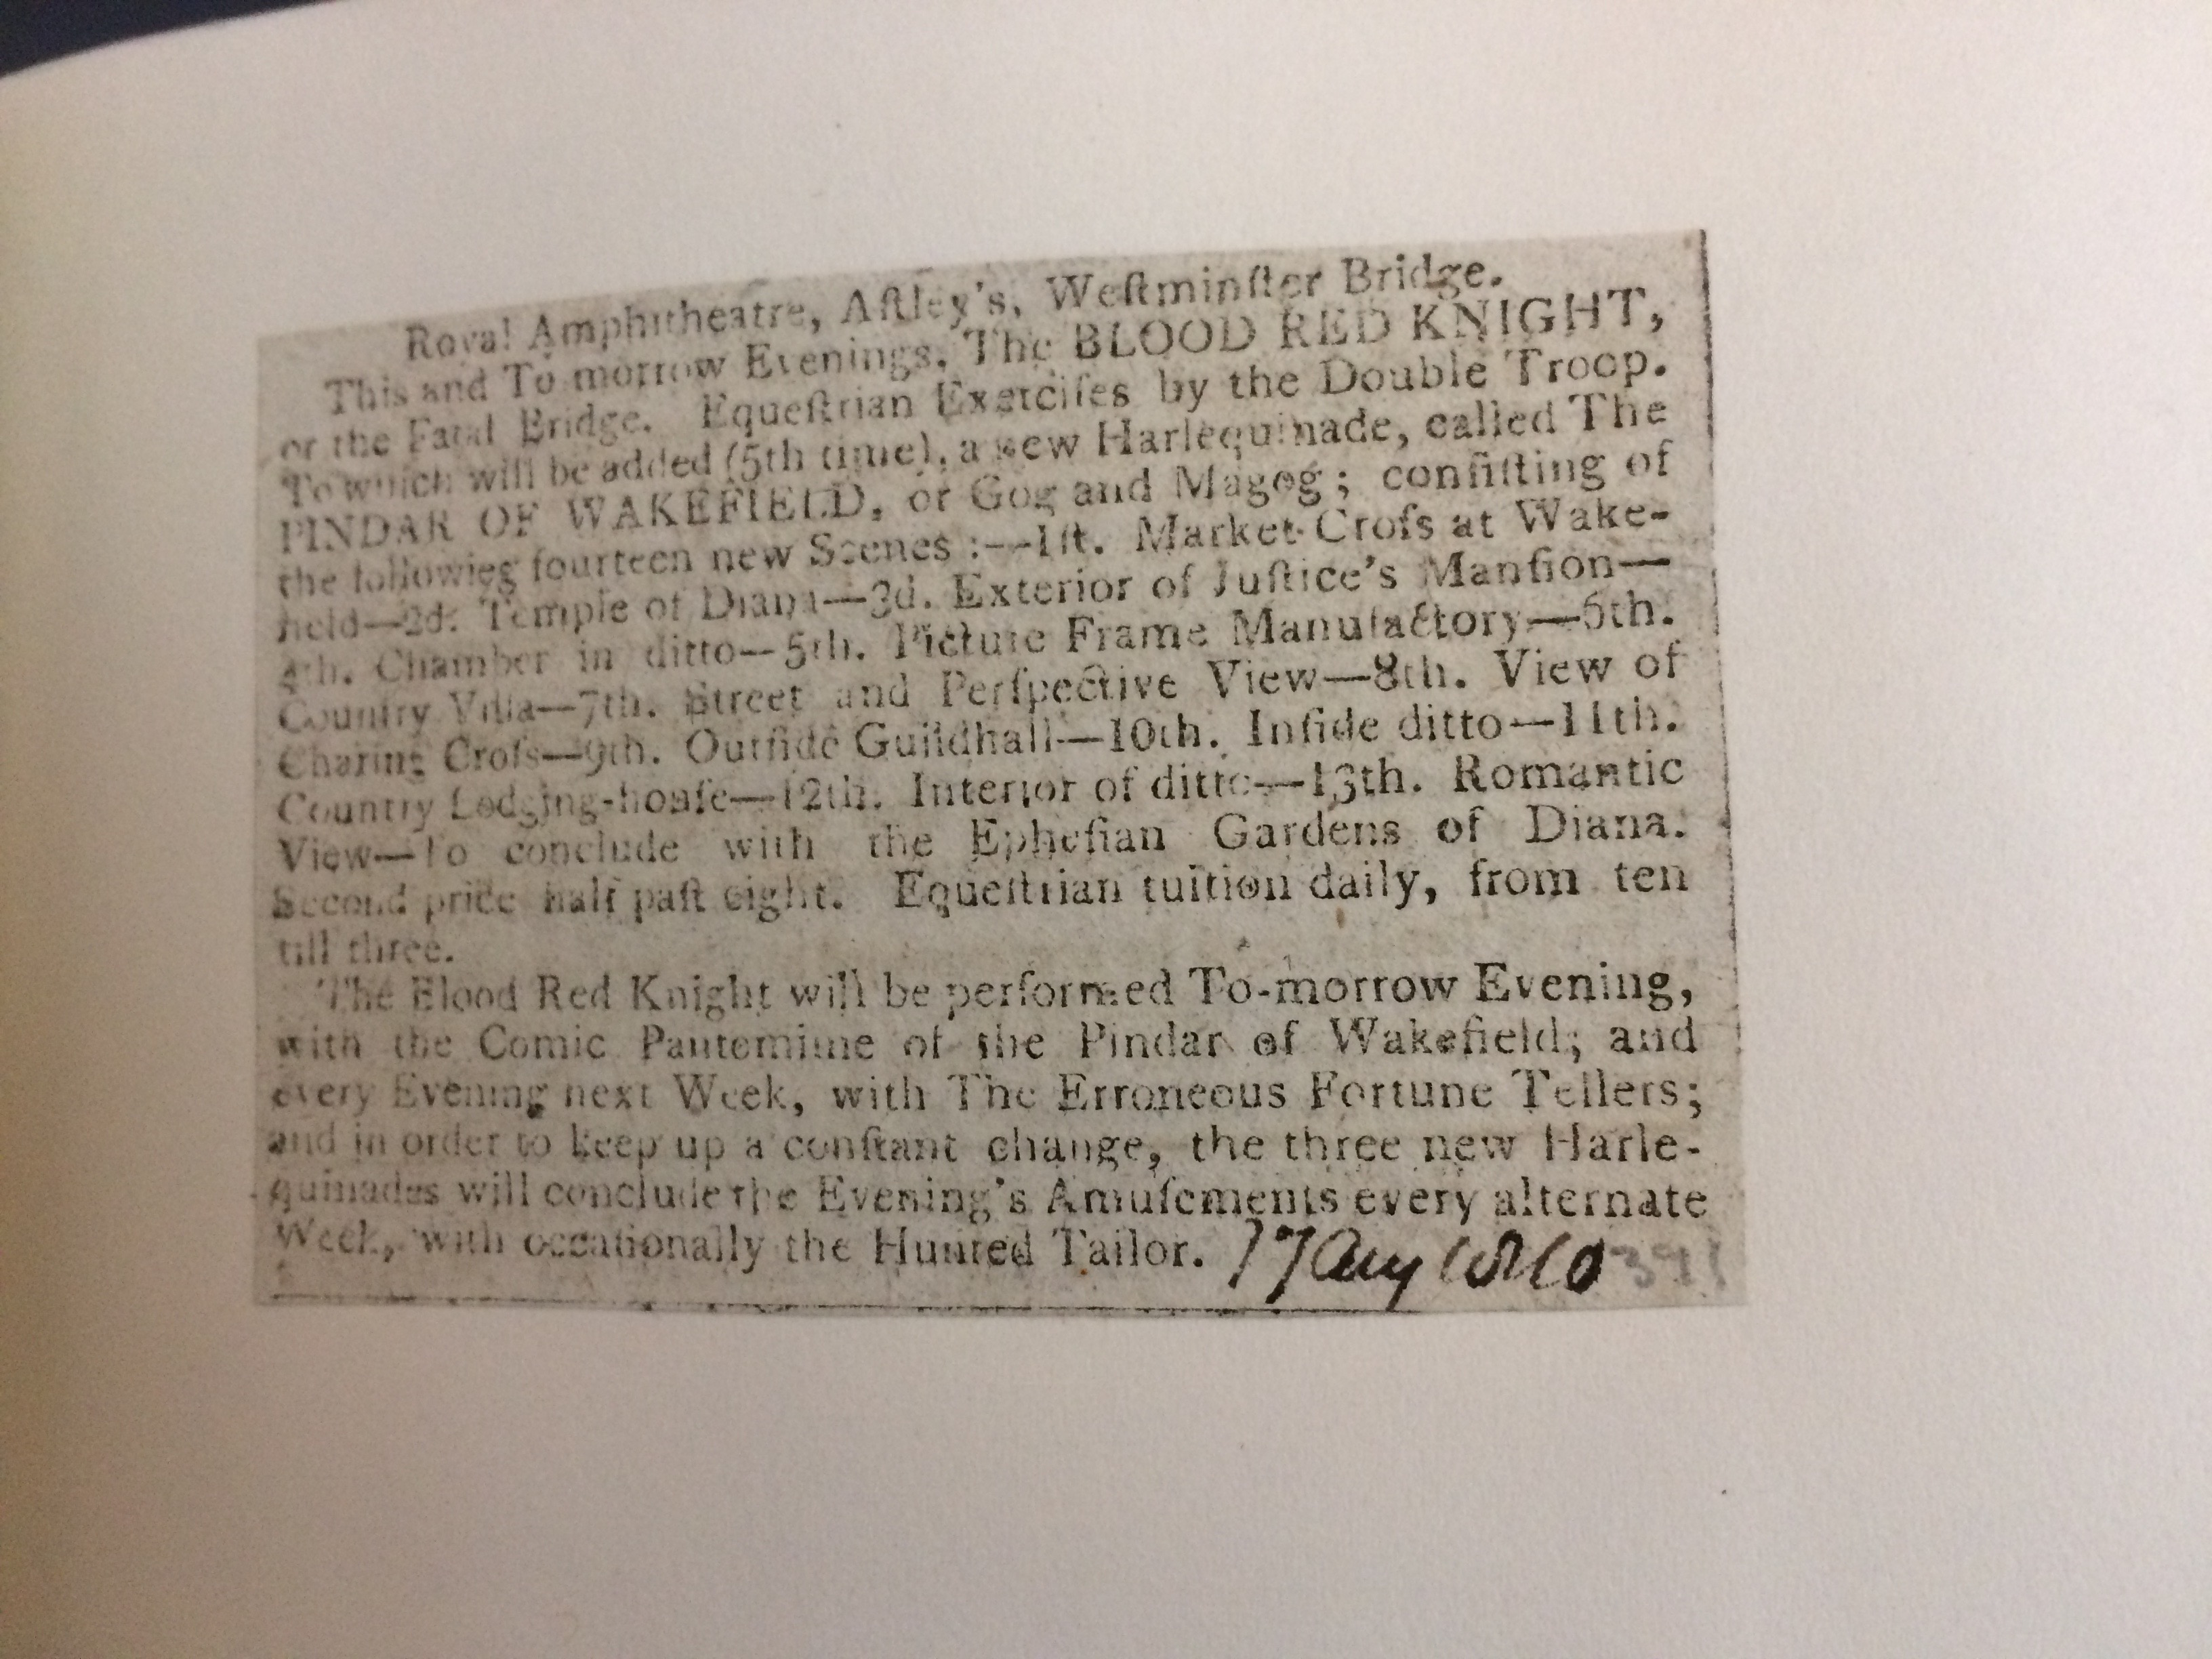 Royal Amphitheatre, Aſtley's, Weſtminſter Bridge.
This and To-morrow Evenings, The BLOOD RED KNIGHT,
or the Fatal Bridge. Equeſtrian Exerciſes by the Double Troop.
To which will be added (5th time), a new Harlequinade, called The
PINDAR OF WAKEFIELD, or Gog and Magog; conſiſting of
the followieg fourteen new Scenes:--1ſt. Market-Croſs at Wake-
field—2d. Temple of Diana—3d. Exterior of Juſtice's Manſion—
4th. Chamber in ditto—5th. Picture Frame Manufactory—6th.
Country Villa—7th. Street and Perſpective View—8th. View of
Charing Croſs—9th. Outſide Guildhall—10th. Inſide ditto—11th.
Country Lodging-houſe—12th. Interior of ditto—13th. Romantic
View—To conclude with the Epheſian Gardens of Diana.
Second price half paſt eight. Equeſtrian tuition daily, from ten
till three.
The Blood Red Knight will be performed To-morrow Evening,
with the Comic Pantomime of the Pindar of Wakefield; and
every Evening next Week, with The Erroneous Fortune Tellers;
and in order to keep up a conſtant change, the three new Harle-
quinades will conclude the Evening's Amuſements every alternate
Week, with occaſionally the Hunted Tailor. 17 Aug 1810